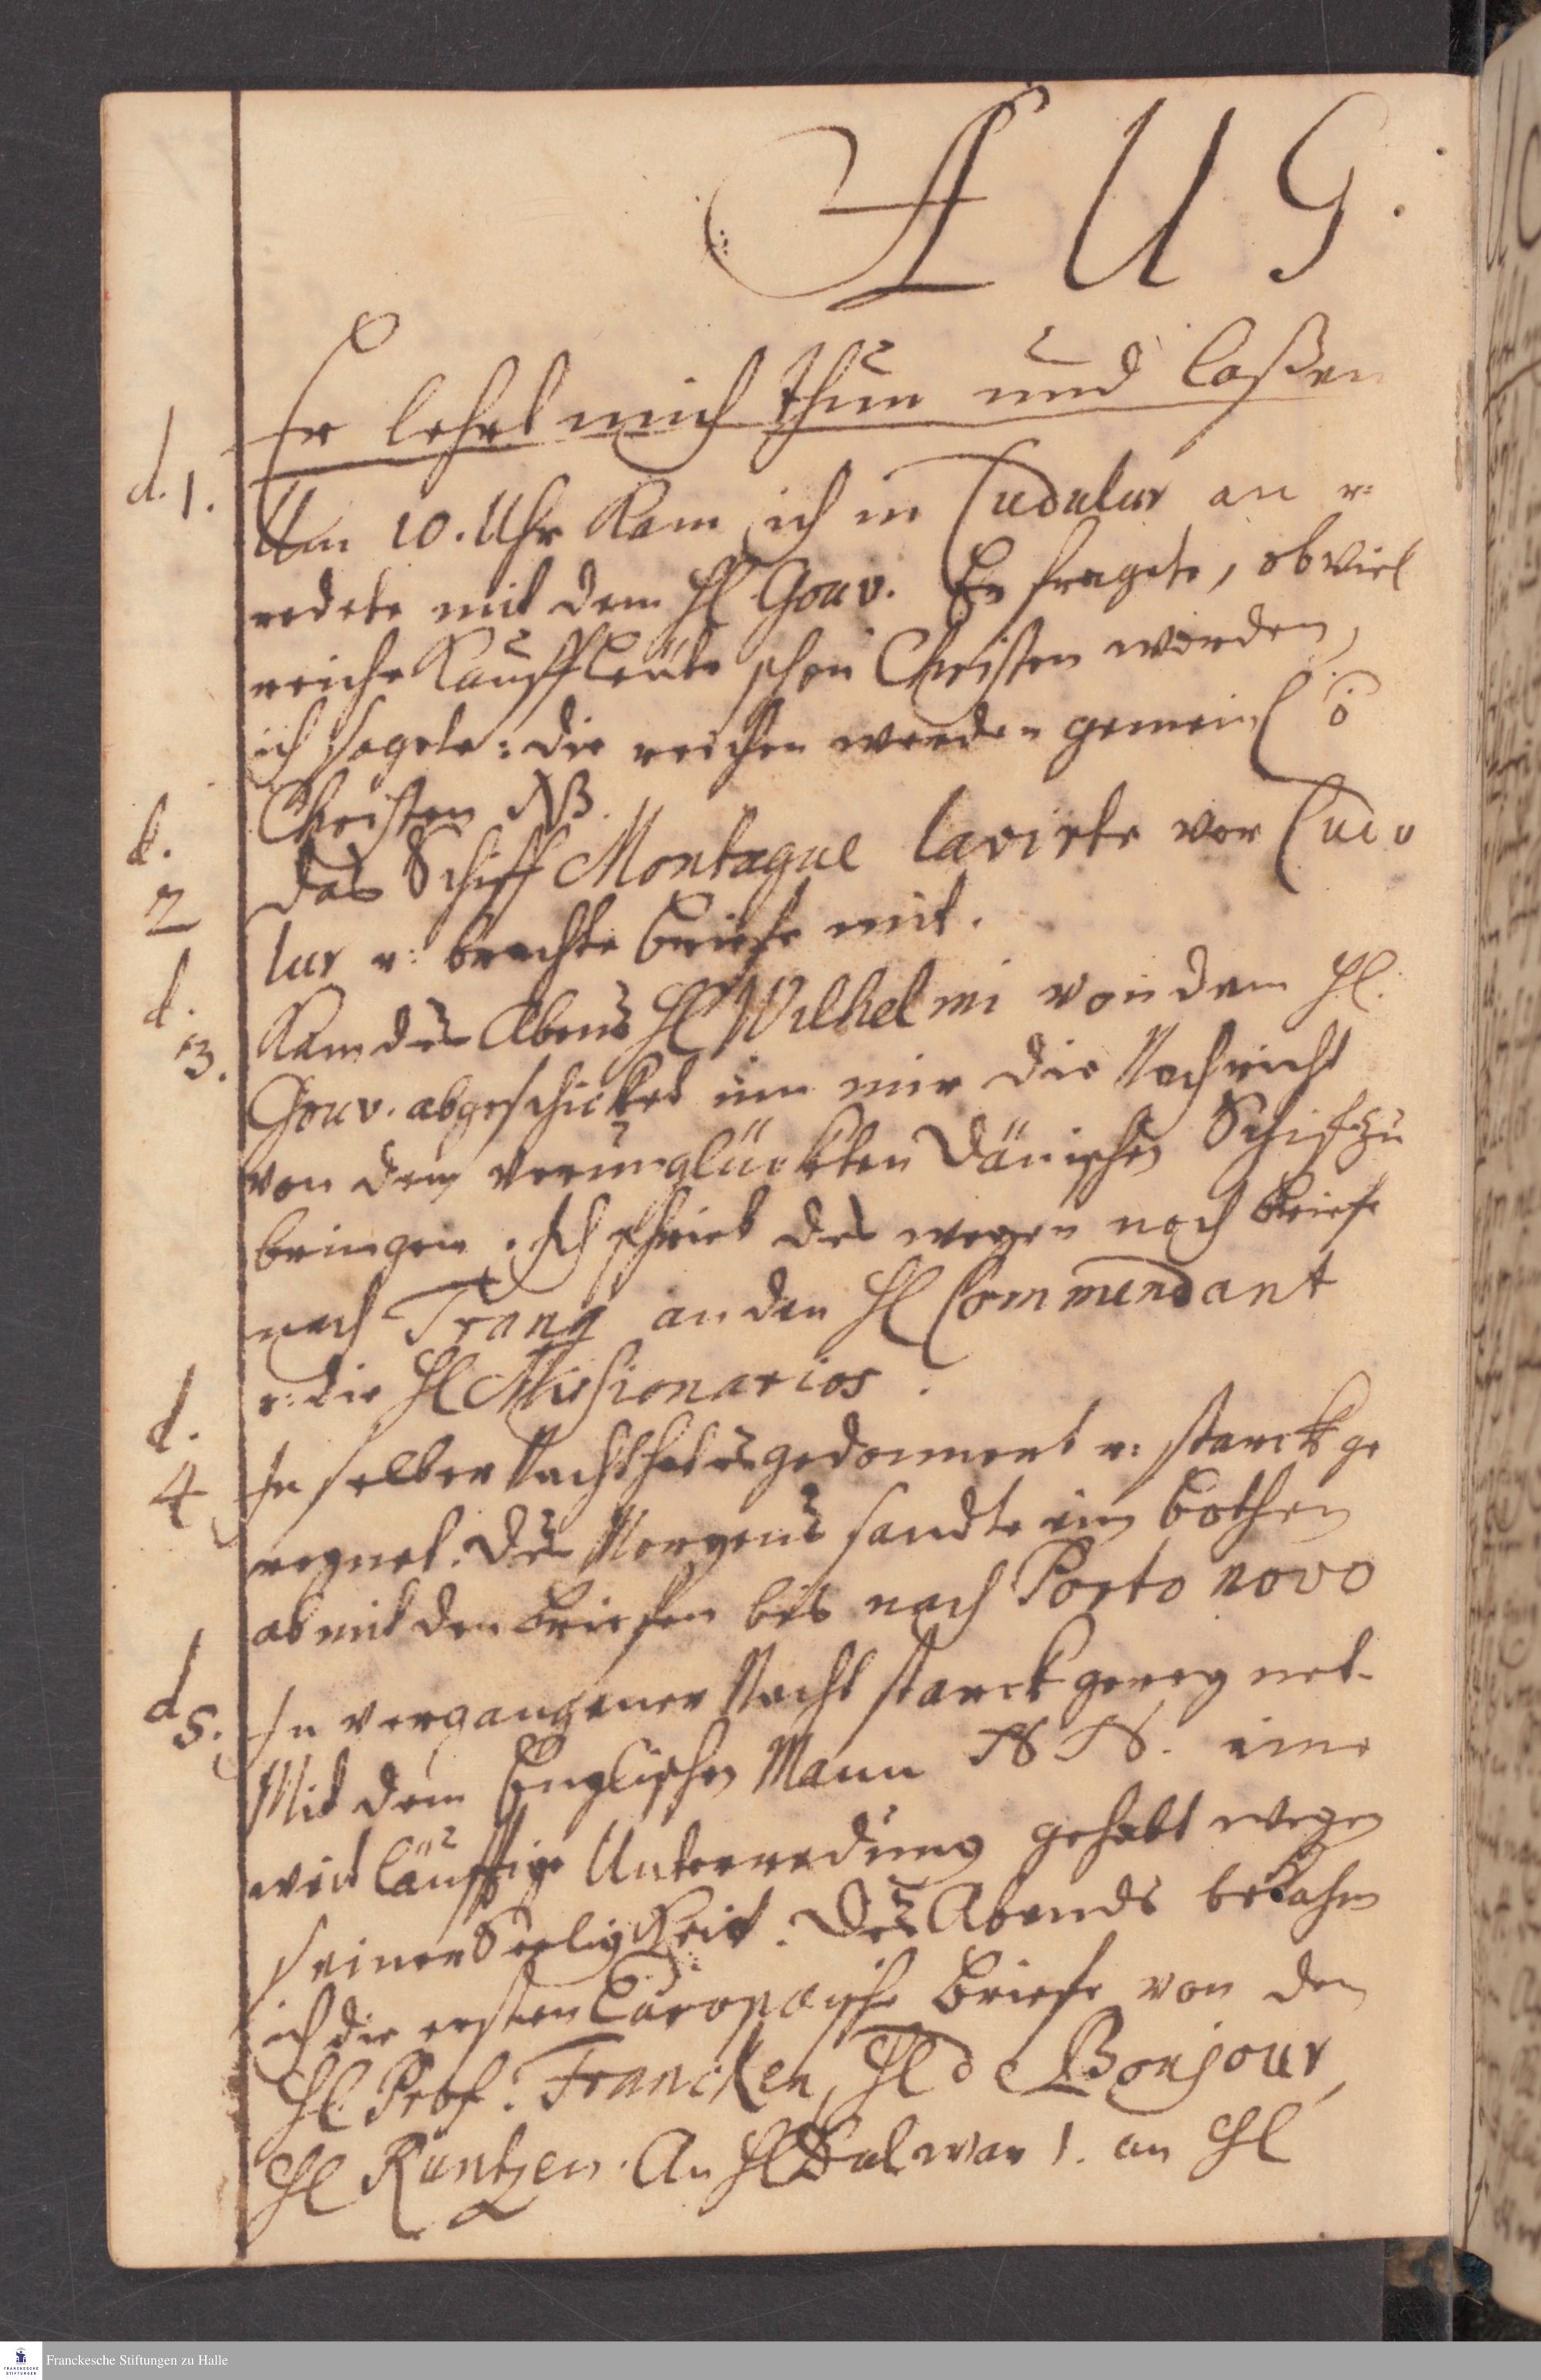 AUG.
Er lehrt mich thun und laßen
d. 1. Um 10. Uhr kam ich in Cudulur an u:
redete mit dem H. Gouv. Er fragete, ob viel
reiche Kauffleute schon Christen worden,
ich sagete: die reichen werden gemeinl
Christen NB.
d. 2 Das Schiff Montague lavirte vor Cudu
lur u: brachte Briefe mit.
d. 3. Kam des Abens H. Wilhelmi von dem H.
Gouv. abgeschicket um mir die Nachricht
von dem verunglückten Dänischen Schif zu
bringen. Ich schrieb des wegen noch Briefe
nach Trang an den H. Commendant
u: die H. Missionarios.
d. 4 In selber Nacht hat es gedonnert u: starck ge
regnet. Des Morgens sandte ein bothen
ab mit den Briefen bis nach Porto novo
d 5. In vergangener Nacht starck geregnet.
Mit dem Englischen Mann N N. eine
weitläuftige Unterredung gehabt wegen
seiner Seeligkeit. Des Abends bekahm
ich die ersten Europaische Briefe von dem
H. Prof. Francken, H. de Bonjour,
H. Kuntzen. An H. Sal. war 1. an H.
Franckesche Stiftungen zu Halle